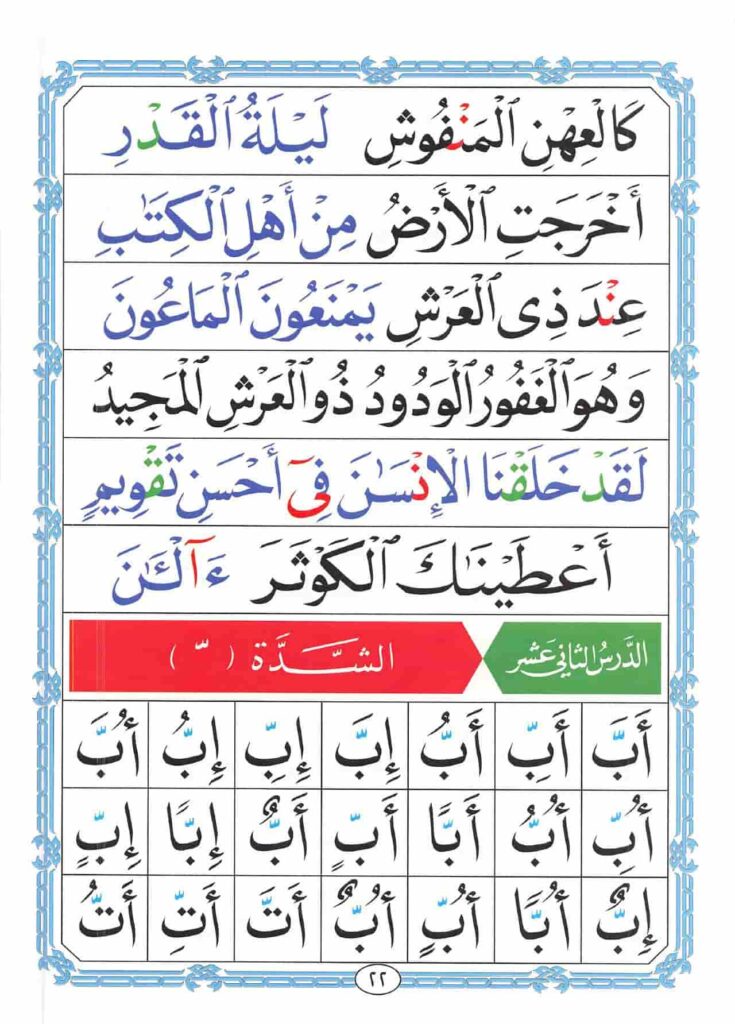 كَالْعِهْنِ ٱلْمَنْفُوشِ لَيْلَةُ ٱلْقَدْرِ
أَخْرَجَتِ ٱلْأَرْضُ مِنْ أَهْلِ ٱلْكِتَٰبِ
عِنْدَ ذِى ٱلْعَرْشِ يَمْنَعُونَ ٱلْمَاعُونَ
وَهُوَ ٱلْغَفُورُ ٱلْوَدُودُ ذُو ٱلْعَرْشِ ٱلْمَجِيدُ
لَقَدْ خَلَقْنَا الْإِنْسَٰنَ فِىٓ أَحْسَنِ تَقْوِيمٍ
أَعْطَيْنَٰكَ ٱلْكَوْثَرَ ءَآلْـَٰٔنَ
الدَّرسُ الثاني عَشَر الشَّدَّة ( ّ )
أَبَّ أَبِّ أَبُّ إِبَّ إِبِّ إِبُّ أُبَّ
أُبِّ أُبُّ أَبًّا أَبٍّ أَبٌّ إِبًّا إِبٍّ
إِبٌّ أُبًّا أُبٍّ أُبٌّ أَتَّ أَتِّ أَتُّ
٢٢